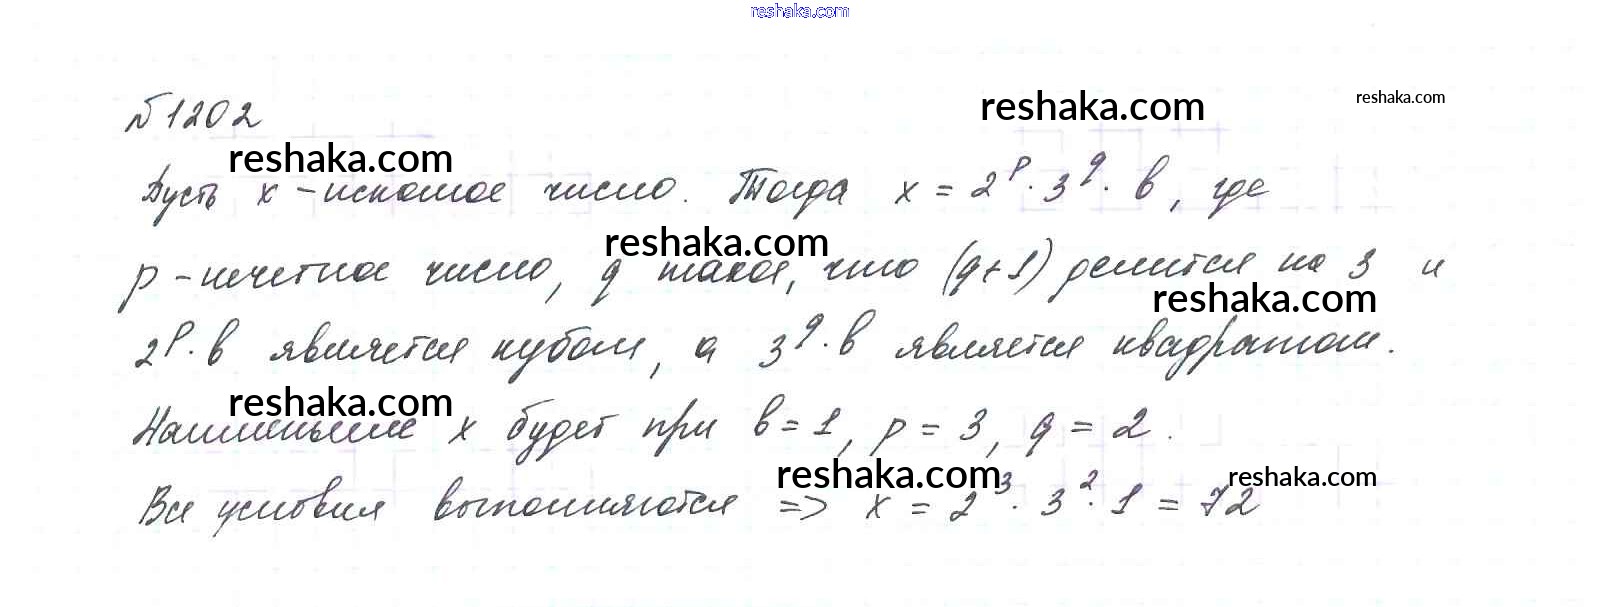 reshaka.com
№1202
reshaka.com
reshaka.com
reshaka.com
Пусть x – искомое число. Тогда x = 2^p · 3^q · b, где
reshaka.com
p – нечетное число, q такое, что (q+1) делится на 3 и
reshaka.com
2^p · b является кубом, а 3^q · b является квадратом.
reshaka.com
Наименьшее x будет при b = 1, p = 3, q = 2.
reshaka.com
reshaka.com
Все условия выполняются => x = 2^3 · 3^2 · 1 = 72